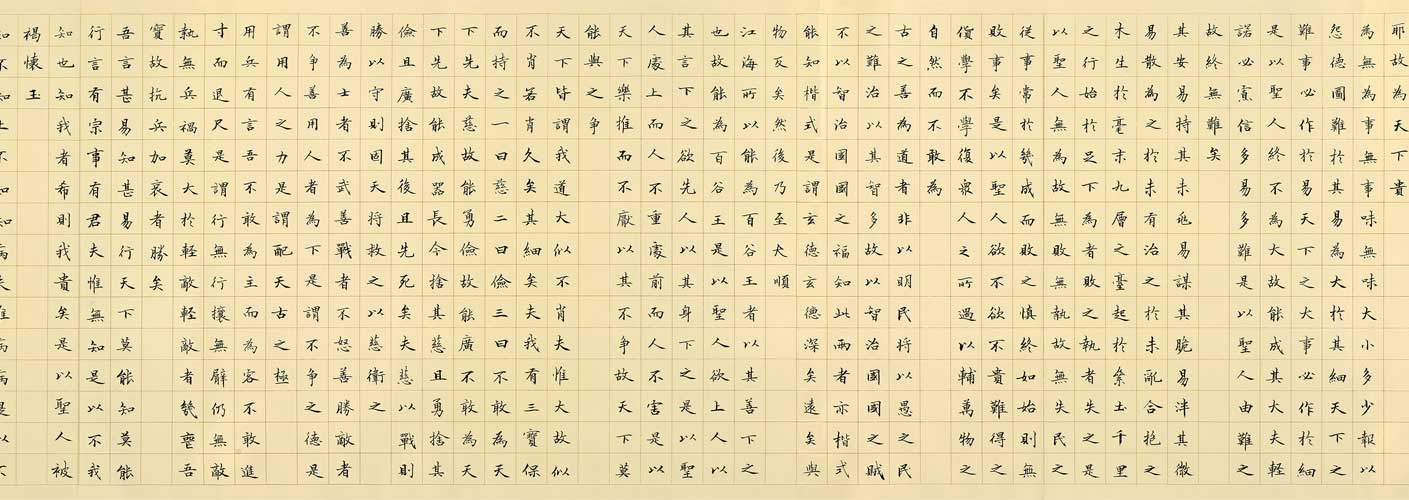 耶故為天下貴
為無為事無事味無味大小多少報以
怨德圖難於其易為大於其細天下之
難事必作於易天下之大事必作於細
是以聖人終不為大故能成其大夫輕
諾必寡信多易多難是以聖人由難之
故終無難矣
其安易持其未兆易謀其脆易泮其微
易散為之於未有治之於未亂合抱之
木生於毫末九層之臺起於絫土千里
之行始於足下為者敗之執者失之是
以聖人無為故無敗無執故無失民之
從事常於幾成而敗之慎終如始則無
敗事矣是以聖人欲不欲不貴難得之
貨學不學復衆人之所過以輔萬物之
自然而不敢為
古之善為道者非以明民將以愚之民
之難治以其智多故以智治國國之賊
不以智治國國之福知此兩者亦楷式
能知楷式是謂玄德玄德深矣遠矣與
物反矣然後乃至大順
江海所以能為百谷王者以其善下之
也故能為百谷王是以聖人欲上人以
其言下之欲先人以其身下之是以聖
人處上而人不重處前而人不害是以
天下樂推而不厭以其不爭故天下莫
能與之爭
天下皆謂我道大似不肖夫惟大故似
不肖若肖久矣其細矣夫我有三寶保
而持之一曰慈二曰儉三曰不敢為天
下先夫慈故能勇儉故能廣不敢為天
下先故能成器長今捨其慈且勇捨其
儉且廣捨其後且先死矣夫慈以戰則
勝以守則固天將救之以慈衛之
善為士者不武善戰者不怒善勝敵者
不爭善用人者為下是謂不爭之德是
謂用人之力是謂配天古之極
用兵有言吾不敢為主而為客不敢進
寸而退尺是謂行無行攘無臂仍無敵
執無兵禍莫大於輕敵輕敵者幾喪吾
寶故抗兵加哀者勝矣
吾言甚易知甚易行天下莫能知莫能
行言有宗事有君夫惟無知是以不我
知也知我者希則我貴矣是以聖人被
褐懷玉